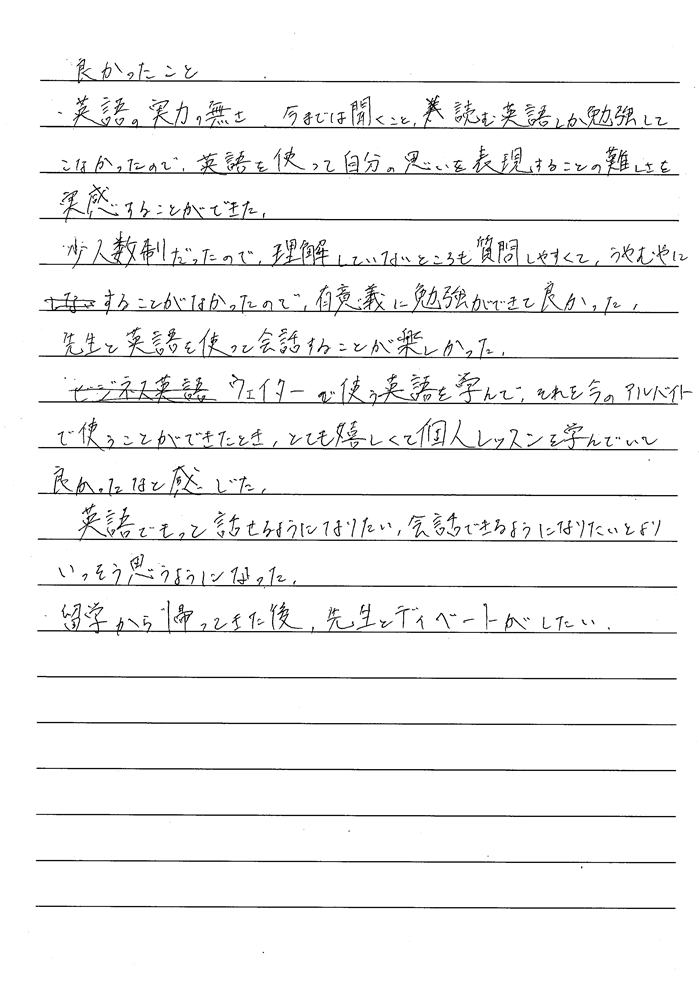 良かったこと
・英語の実力の無さ 今までは聞くこと、読む英語しか勉強して
こなかったので、英語を使って自分の思いを表現することの難しさを
実感することができた。
・少人数制だったので、理解していないところも質問しやすくて、うやむやに
することがなかったので、有意義に勉強ができて良かった。
先生と英語を使って会話することが楽しかった。
ビジネス英語 ウェイターで使う英語を学んで、それを今のアルバイト
で使うことができたとき、とても嬉しくて個人レッスンを学んでいて
良かったなと感じた。
英語でもって話せるようになりたい、会話できるようになりたいとより
いっそう思うようになった。
留学から帰ってきた後、先生とディベートがしたい。